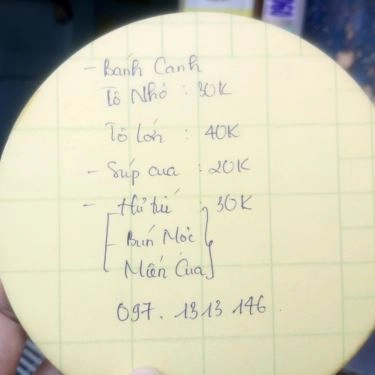 - Bánh Canh
Tô Nhỏ : 30K
Tô lớn : 40K
- Súp cua : 20K
- Hủ tiế : 30K
- Bún Mộc
- Miến Cua
097. 1313 146.